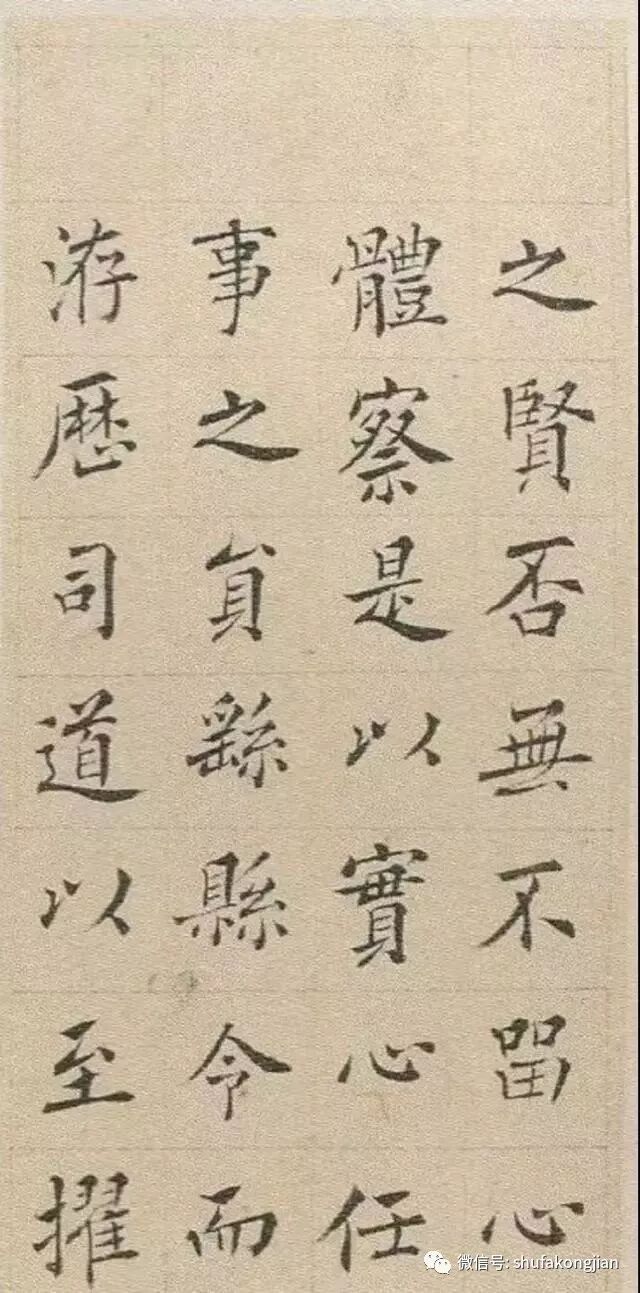 之賢否無不留心
體察是以實心任
事之貟繇縣令而
洊歷司道以至擢
微信号: shufakongjian